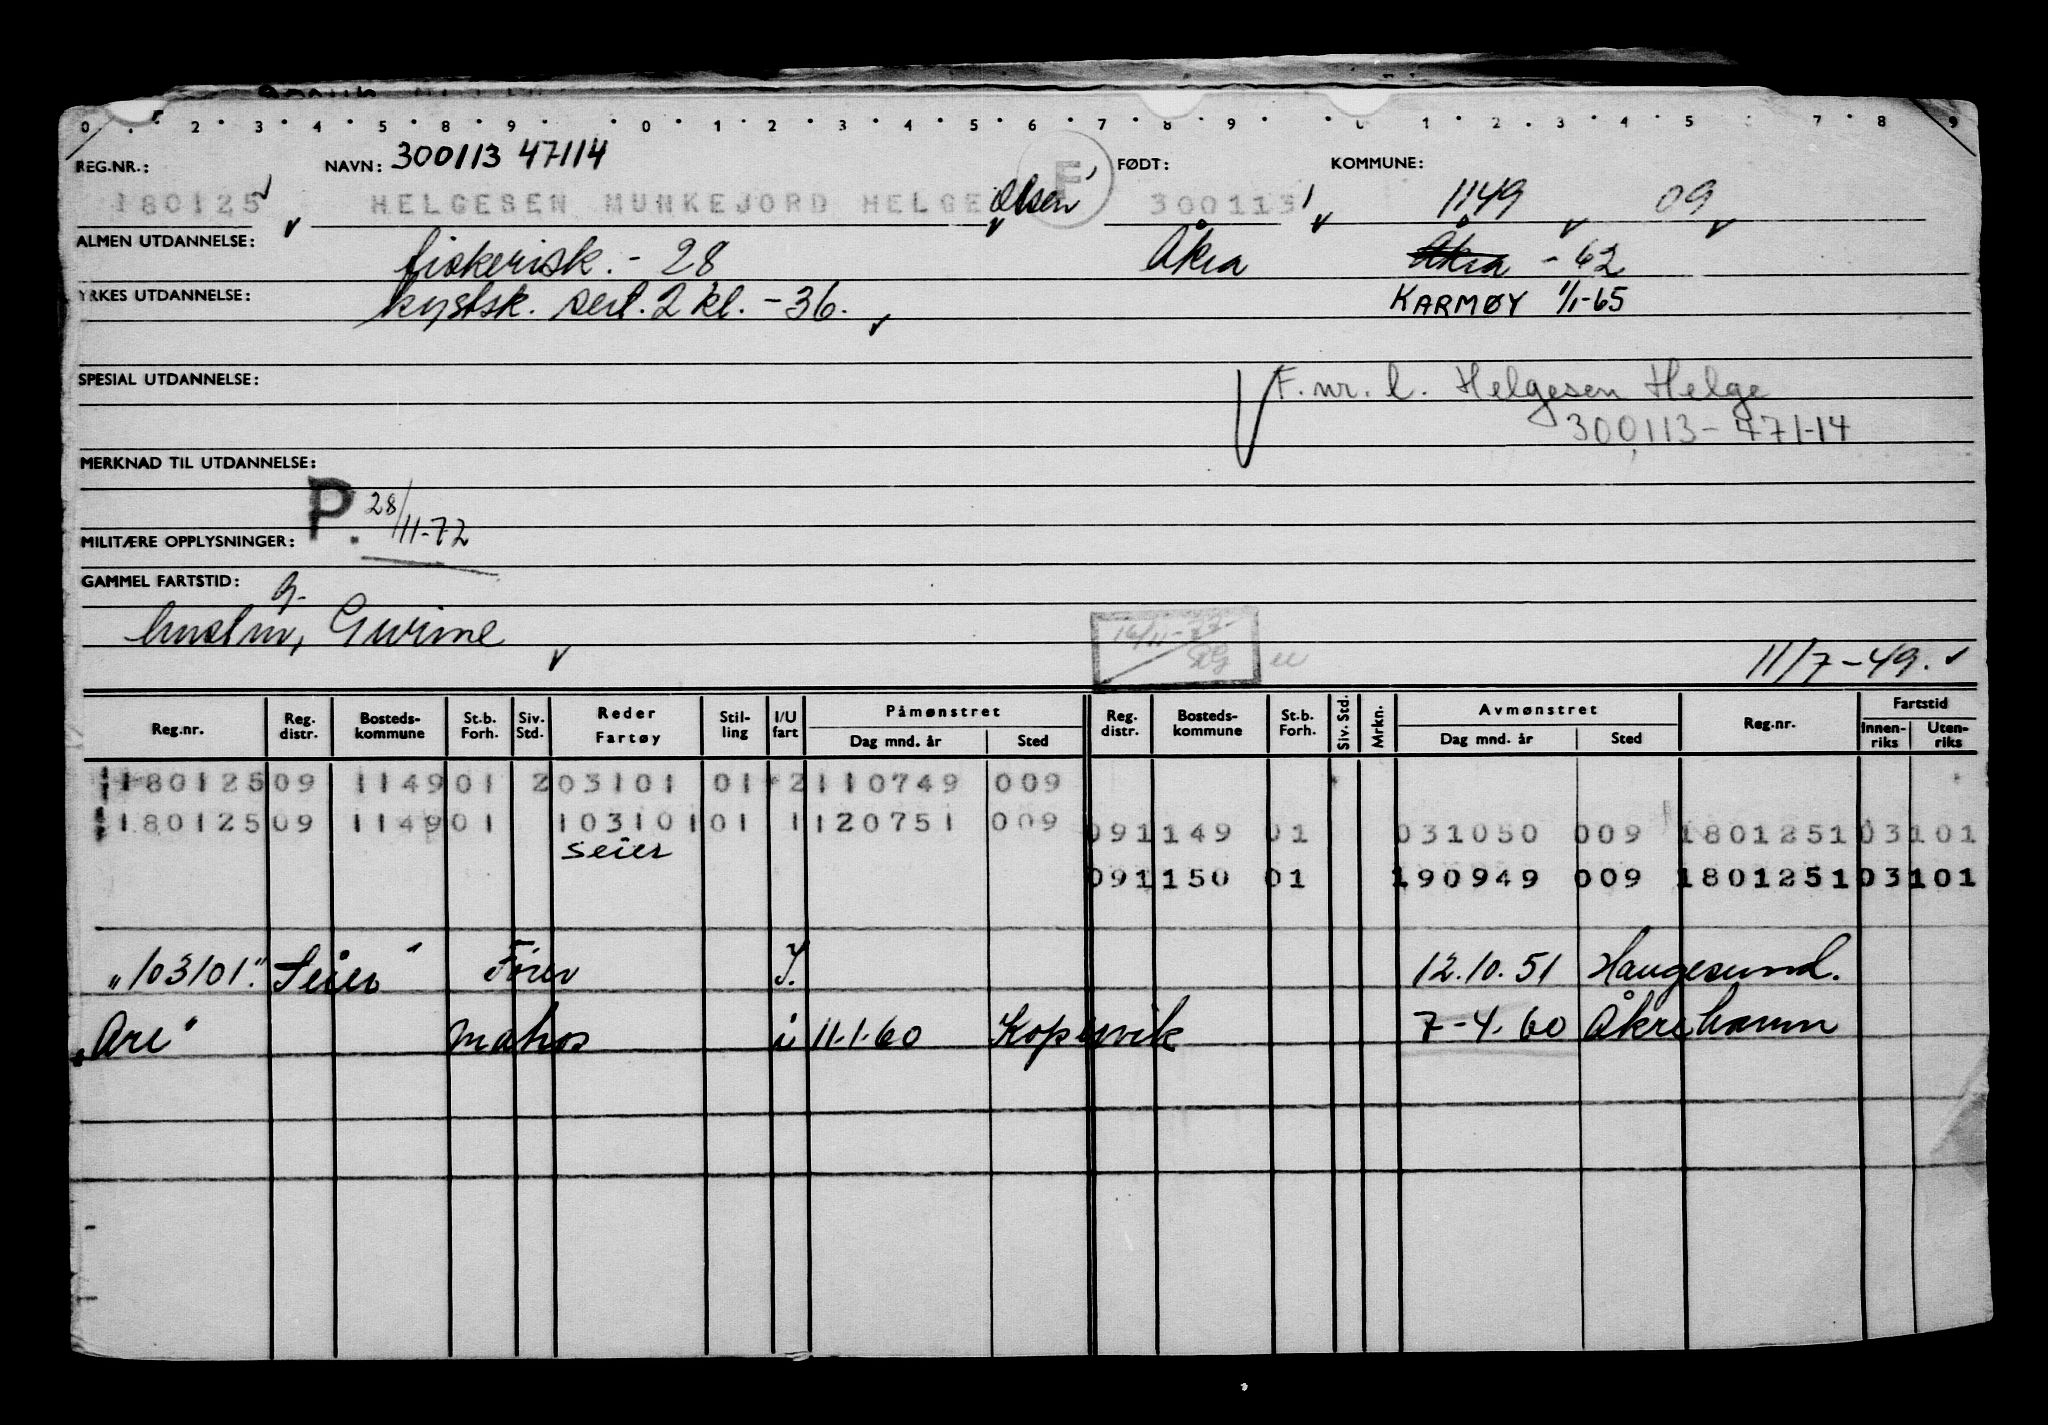 0 . 2 . 3 . 4 . 5 . 8 . 9 . . 0 . 1 . 2 . 3 . 4 . 5 . 6 . 7 . 8 . 9 . . 1 . 2 . 3 . 4 . 5 7 . 8 . 9
REG.NR.: NAVN: 300113 47114 FØDT: KOMMUNE:
180125 HELGESEN MUNKEJORD HELGE Olsen F 300113 1149 09
ALMEN UTDANNELSE: fiskerisk. - 28 Åkra Åkra - 62
YRKES UTDANNELSE: kystsk. sert. 2 kl. - 36. KARMØY 1/1-65
SPESIAL UTDANNELSE: F. nr. l. Helgesen Helge
300113-471-14
MERKNAD TIL UTDANNELSE:
P. 28/11-72
MILITÆRE OPPLYSNINGER:
GAMMEL FARTSTID:
16/11-77
11/7-49.
Reg.nr. Reg. distr. Bosteds-kommune St.b. Forh. Siv. Std. Reder Fartøy Stil-ling I/U fart Påmønstret Dag mnd. år Sted Reg. distr. Bosteds-kommune St.b. Forh. Siv. Std. Mrkn. Avmønstret Dag mnd. år Sted Reg.nr. Fartstid Innen-riks Uten-riks
180125 09 1149 01 2 03101 01 2 110749 009
180125 09 1149 01 103101 01 1 120751 009
091149 01 031050 009 1801251 03101
seier
091150 01 190949 009 1801251 03101
"103101". Seier" Fører I. 12.10.51 Haugesund.
"Are" matros i 11-1-60 Kopervik 7-4-60 Åkrehamn